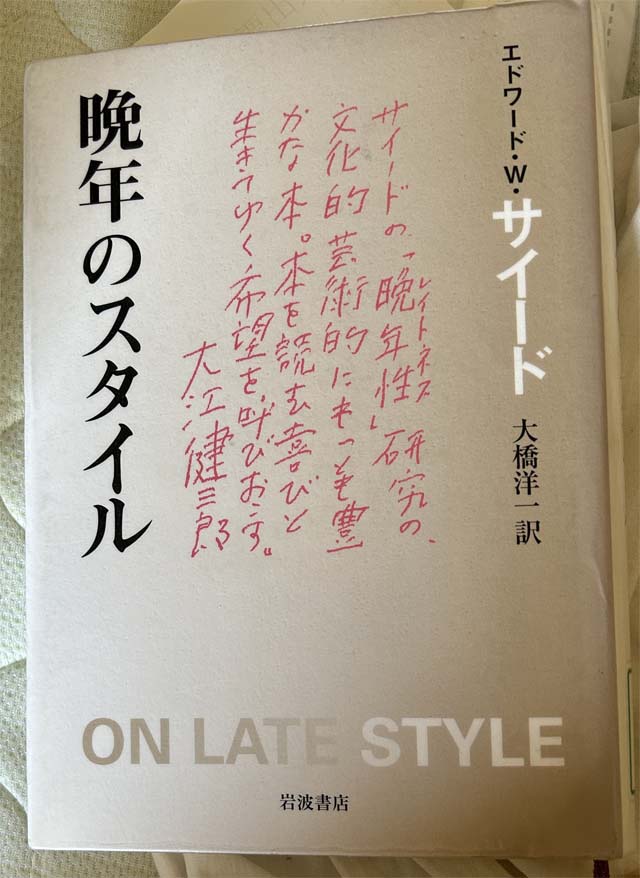 エドワード・W・サイード
大橋洋一訳
サイードの「晩年性」研究の、
レイトネス
文化的芸術的にもっとも豊
かな本。本を読む喜びと
生きてゆく希望を呼びおこす。
大江健三郎
晩年のスタイル
ON LATE STYLE
岩波書店